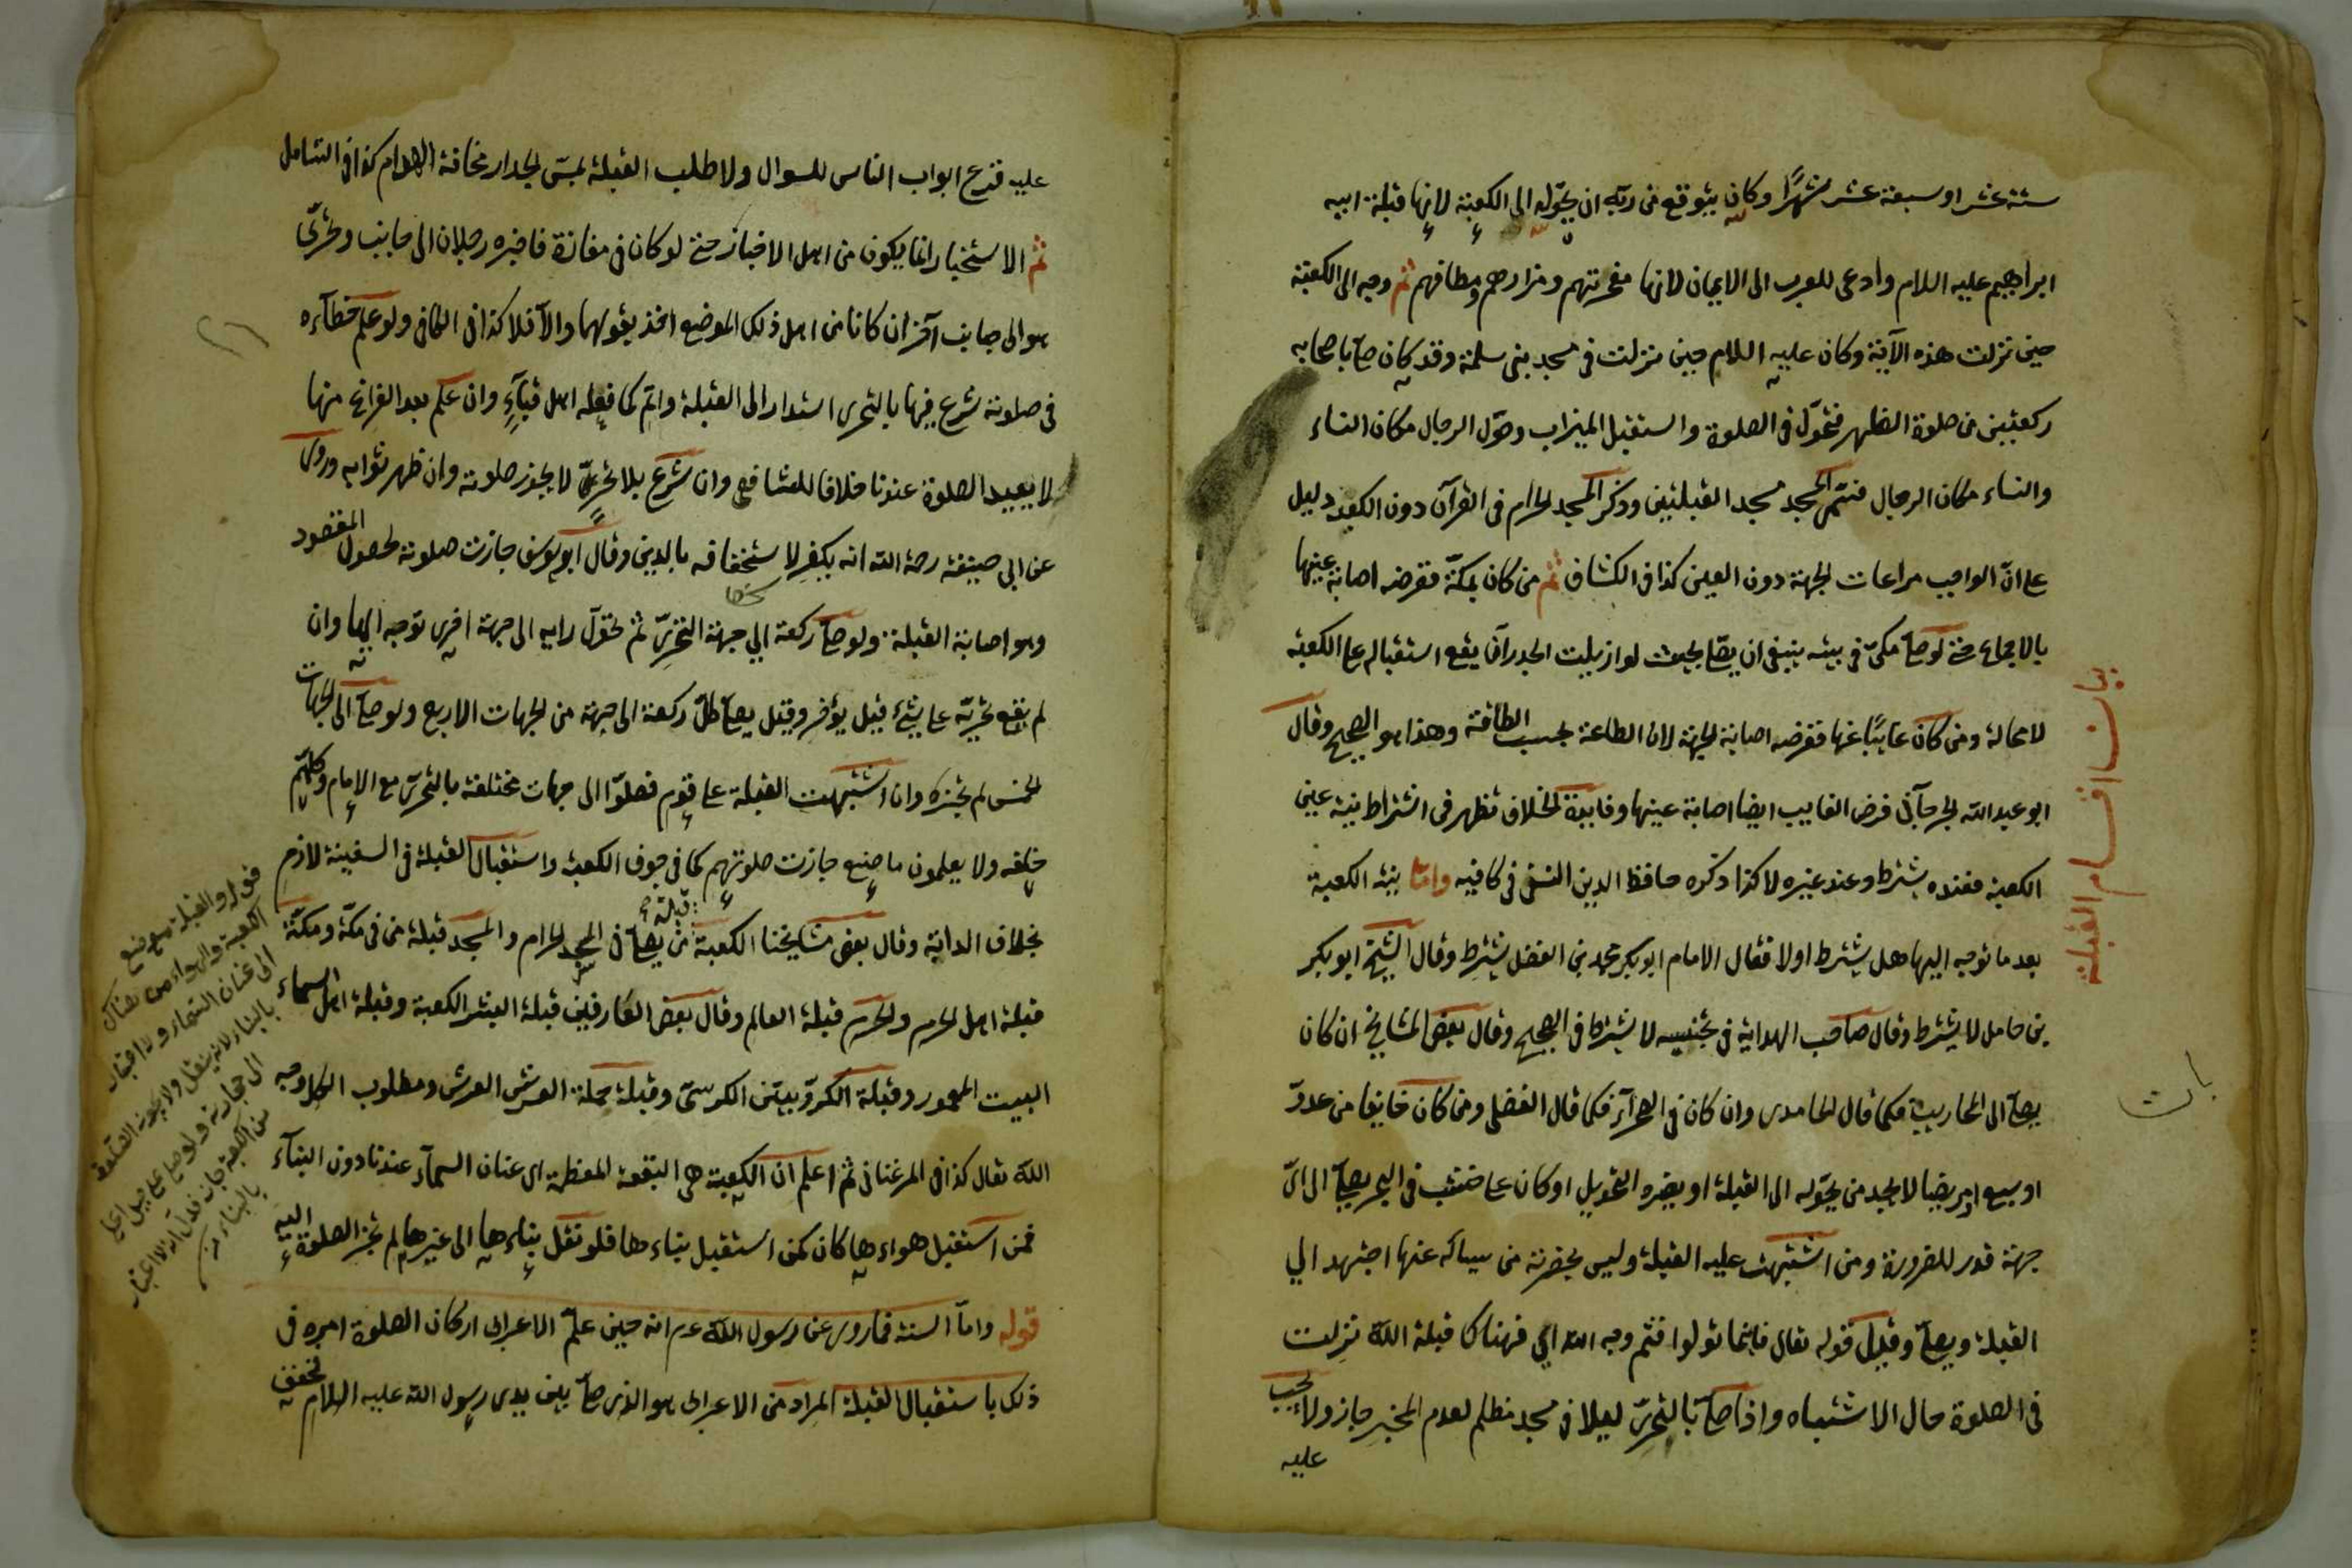 ستة عشر او سبعة عشر شهرًا وكان يتوقع من ربه ان يحوّله الى الكعبة لانها قبلة ابيه
ابراهيم عليه السلام وادعى للعرب الى الايمان لانها مفخرتهم ومزارهم ومطافهم ثم وجه الى الكعبة
حين نزلت هذه الآية وكان عليه السلام حين نزلت في مسجد بنى سلمة وقد كان صلّى باصحابه
ركعتين من صلوة الظهر فتحوّل في الصلوة واستقبل الميزاب وحوّل الرجال مكان النساء
والنساء مكان الرجال فسمّى المسجد مسجد القبلتين وذكر المسجد الحرام في القرآن دون الكعبة دليل
على انّ الواجب مراعات الجهة دون العين كذا في الكشاف ثم من كان بمكّة ففرضه اصابة عينها
بالاجماع حتى لو صلّى مكىّ في بيته ينبغى ان يصلّى بحيث لو ازيلت الجدران يقع استقباله على الكعبة
لا محالة ومن كان غايبًا عنها ففرضه اصابة الجهة لان الطاعة بحسب الطاقة وهذا هو الصحيح وقال
ابو عبد الله الجرجانى فرض الغايب ايضا اصابة عينها وفايدة الخلاف تظهر في اشتراط نية عين
الكعبة فعنده يشترط وعند غيره لا كذا ذكره حافظ الدين النسفى في كافيه وامّا نية الكعبة
بعد ما توجه اليها هل يشترط اولا فقال الامام ابو بكر محمد بن الفضل يشترط وقال الشيخ ابو بكر
بن حامل لا يشترط وقال صاحب الهداية في تجنيسه لا يشترط في الصحيح وقال بعض المشايخ ان كان
يصلّى الى المحاريب فكما قال الحامدى وان كان في الصحرآء فكما قال الفضلى ومن كان خايفا من عدوّ
او سبع او مريضا لا يجد من يحوّله الى القبلة او يضره التحويل او كان على خشب في البحر يصلّى الى اىّ
جهة قدر للضرورة ومن اشتبهت عليه القبلة وليس بحضرته من يسأله عنها اجتهد الى
القبلة ويصلّى وقيل قوله تعالى فاينما تولوا فثم وجه الله اى فهناك قبلة الله نزلت
في الصلوة حال الاشتباه واذا صلّى بالتحرىّ ليلا في مسجد مظلم لعدم المخبر جاز ولا يجب
عليه
بيان اقسام القبلة
عليه قرع ابواب الناس للسوال ولا طلب القبلة بمسّ الجدار مخافة الهوام كذا في الشامل
ثم الاستخبار انما يكون من اهل الاخبار حتى لو كان في مفازة فاخبره رجلان الى جانب وتحرّى
هو الى جانب آخر ان كانا من اهل ذلك الموضع اخذ بقولهما والّا فلا كذا في الكافى ولو علم خطآءه
في صلوته شرع فيها بالتحرى استدار الى القبلة واتم كما فعله اهل قبآء وان علم بعد الفراغ منها
لا يعيد الصلوة عندنا خلافا للشافعى وان شرع بلا تحرّ لا يجوز صلوته وان ظهر ثوابه وروى
عن ابى حنيفة رحمة الله انه يكفر لاستخفافه بالدين وقال ابو يوسف جازت صلوته لحصول المقصود
وهو اصابة القبلة ولو صلّى ركعة الى جهة التحرىّ ثم تحوّل رايه الى جهة اخرى توجه اليها وان
لم يقع تحريّه على شىء قيل يؤخر وقيل يصلّى كلّ ركعة الى جهة من الجهات الاربع ولو صلّى الى الجهات
الخمس لم يجزه وان اشتبهت القبلة على قوم فصلوا الى جهات مختلفة بالتحرى مع الامام وكلهم
خلفه ولا يعلمون ما صنع جازت صلوتهم كما في جوف الكعبة واستقبال القبلة في السفينة لازم
بخلاف الدابة وقال بعض مشايخنا الكعبة قبلة من يصلّى في المسجد الحرام والمسجد قبلة من في مكّة ومكّة
قبلة اهل الحرم والحرم قبلة العالم وقال بعض العارفين قبلة البشر الكعبة وقبلة اهل السماء
البيت المعمور وقبلة الكروّبيّين الكرسىّ وقبلة حملة العرش العرش ومطلوب الكل وجه
الله تعالى كذا في المرغنانى ثم اعلم ان الكعبة هى البقعة المعظمة الى عنان السمآء عندنا دون البنآء
فمن استقبل هواءها كان كمن استقبل بناءها فلو نقل بناءها الى غيرها لم تجز الصلوة اليه
قوله وامّا السنة فما روى عن رسول الله عم انه حين علّم الاعرابى اركان الصلوة امره في
ذلك باستقبال القبلة المراد من الاعرابى هو الذى صلّى بين يدى رسول الله عليه السلام فخفف
قوله والقبلة موضع
الكعبة والهواء من هناك
الى عنان السماء ولا اعتبار
بالبناء لانه ينقل ولا يجوز الصلوة
الى حجارته ولو صلى على جبل اعلى
من الكعبة جاز فدلّ انه لا اعتبار
بالبناء